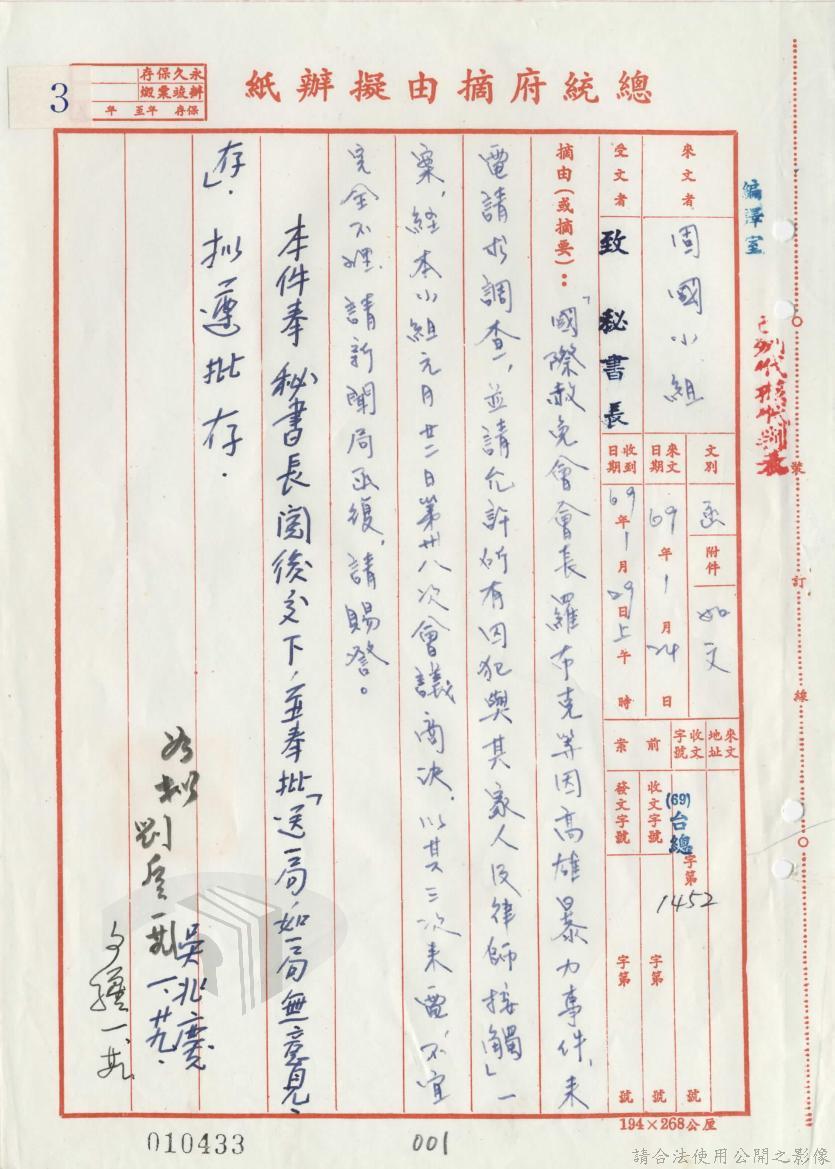 總統府摘由擬辦紙
永久保存
辦竣票燬
保存 年至 年
3
編譯室
來文者
固國小組
受文者
致 秘書長
文別
函
附件
如文
來文日期
69年1月24日
收到日期
69年1月29日上午 時
來文地址
收文字號
前案
(69)台總字第1452號
收文字號 字第 號
發文字號 字第 號
摘由(或摘要):
「國際赦免會會長羅布克等因高雄暴力事件,來
電請求調查,並請允許所有囚犯與其家人及律師接觸」一
案,經本小組元月廿二日第卅八次會議商決,以其三次來電,不宜
完全不理,請新聞局函復,請賜詧。
本件奉 秘書長閱後交下,並奉批「送一局,如一局無意見,
存」.擬遵批存.
如擬
吳兆慶
一、廿九.
裝 訂 線
194×268公厘
010433
001
請合法使用公開之影像